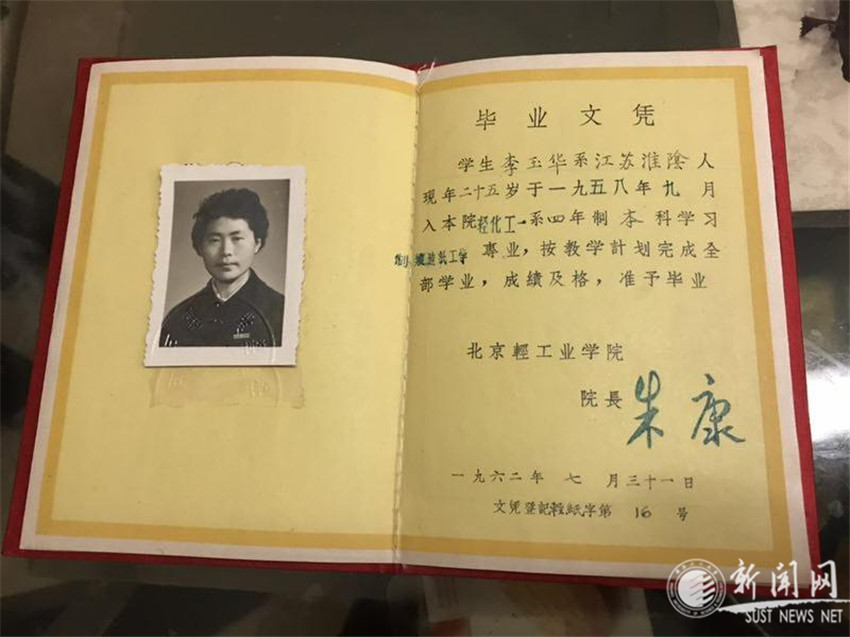 毕业文凭
学生李玉华系江苏淮陰人
现年二十五岁于一九五八年九月
入本院轻化工系四年制本科学习
制浆造纸工学专业，按教学計划完成全
部学业，成績及格，准予毕业
北京輕工业学院
院長 朱康
一九六二年七月三十一日
文凭登記輕紙字第16号
新闻网
SUST NEWS NET